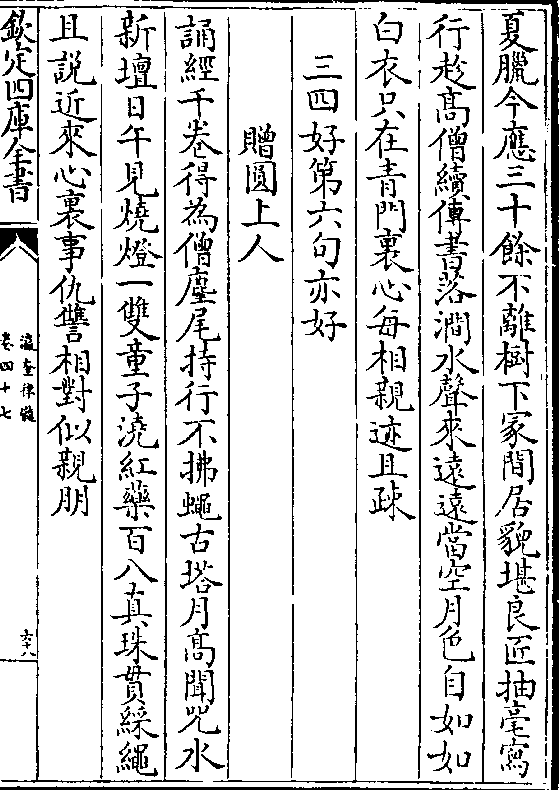 夏臘今應三十餘不離樹下冢間居貌堪良匠抽毫寫
行趁髙僧續傳書落澗水聲來遠遠當空月色自如如
白衣只在青門裏心每相親迹且疎
三四好第六句亦好
贈圓上人
誦經千卷得為僧麈尾持行不拂蠅古塔月髙聞咒水
新壇日午見燒燈一雙童子澆紅藥百八真珠貫綵繩
且説近來心裏事仇讐相對似親朋
欽定四庫全書
瀛奎律髓
卷四十七
六十八